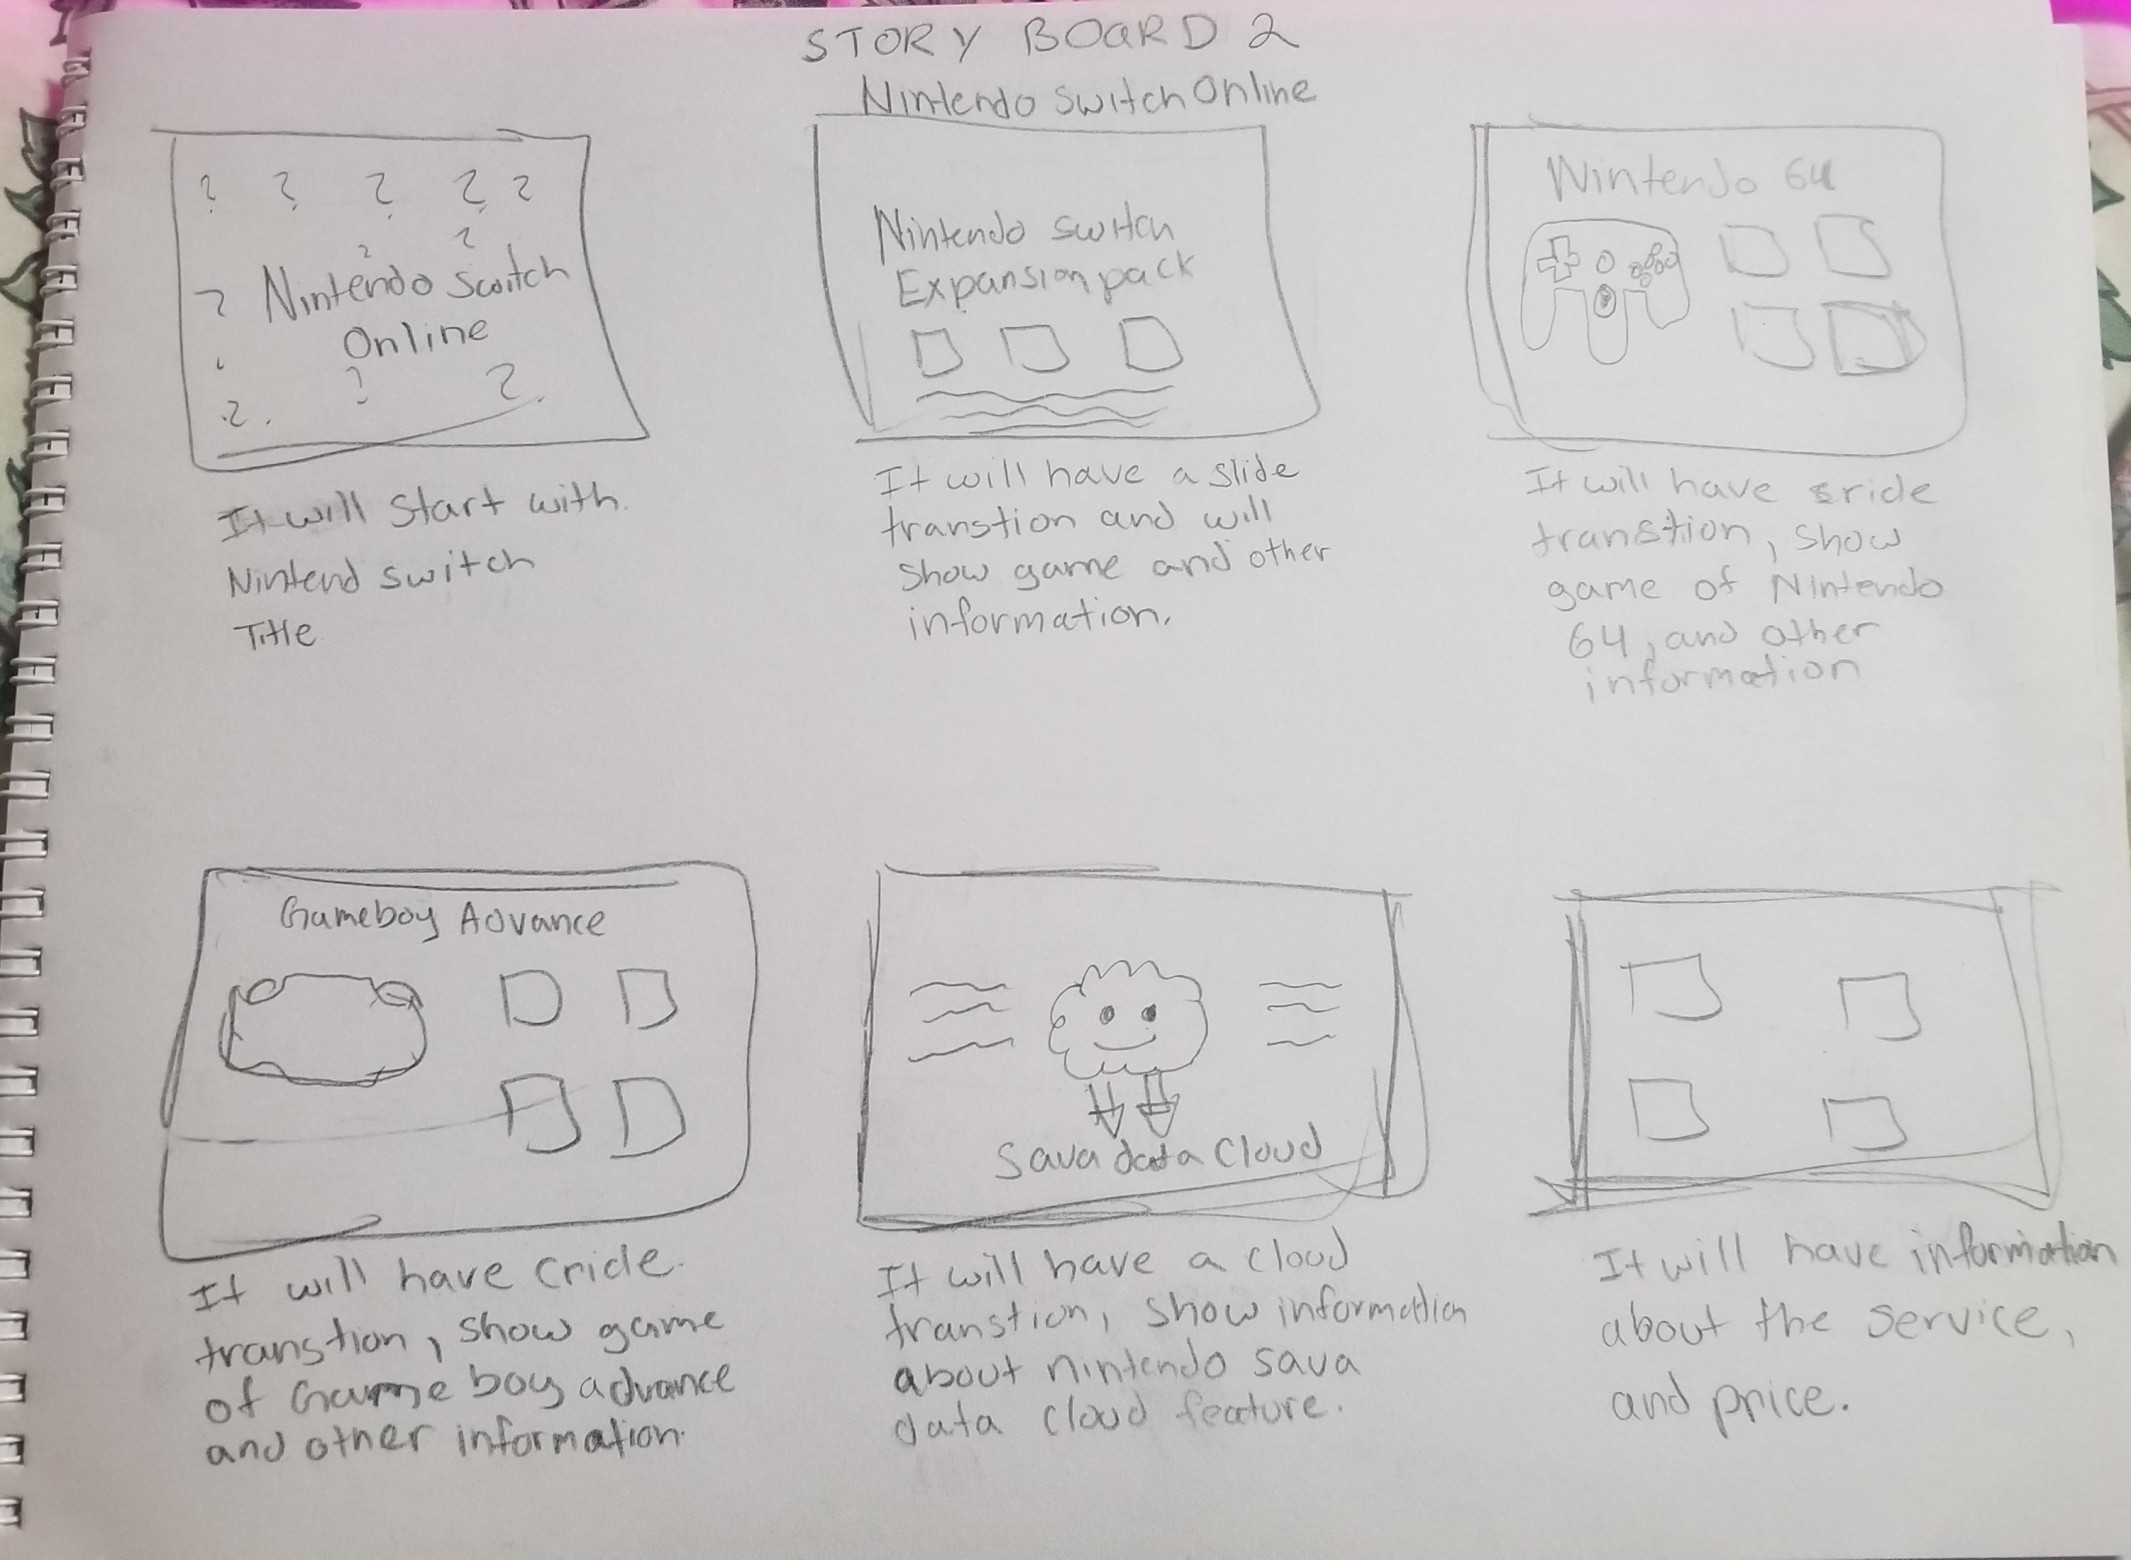 STORY BOARD 2
Nintendo Switch Online
? ? ? ? ?
? ?
? Nintendo Switch
Online
? ?
?
It will start with
Nintend switch
Title
Nintendo switch
Expansion pack
It will have a slide
transtion and will
show game and other
information.
Nintendo 64
It will have sride
transtion, show
game of Nintendo
64, and other
information
Gameboy Advance
It will have cricle
transtion, show game
of Game boy advance
and other information.
Sava data Cloud
It will have a cloud
transtion, show information
about nintendo sava
data cloud feature.
It will have information
about the service,
and price.